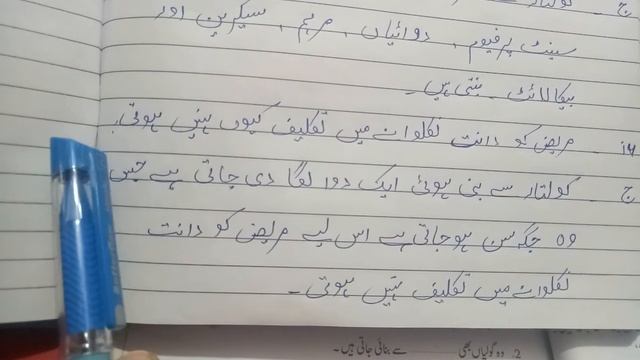 ج - کولتار
سینٹ پرفیوم، دوائیاں، مرہم، سیکرین اور
بیکالائٹ بنتی ہیں۔
س۱۱ - مریض کو دانت نکلوانے میں تکلیف کیوں نہیں ہوتی؟
ج - کولتار سے بنی ہوئی ایک دوا لگا دی جاتی ہے جس
وہ جگہ سن ہوجاتی ہے اس لیے مریض کو دانت
نکلوانے میں تکلیف نہیں ہوتی۔
2. وہ گولیاں بھی ............ سے بنائی جاتی ہیں۔